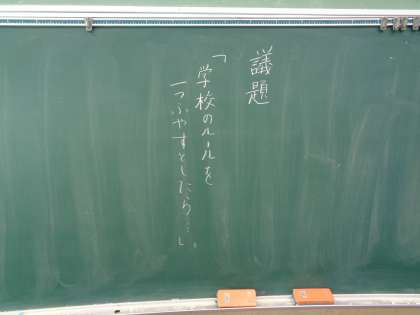 議題
「学校のルールを
一つふやすとしたら…。」